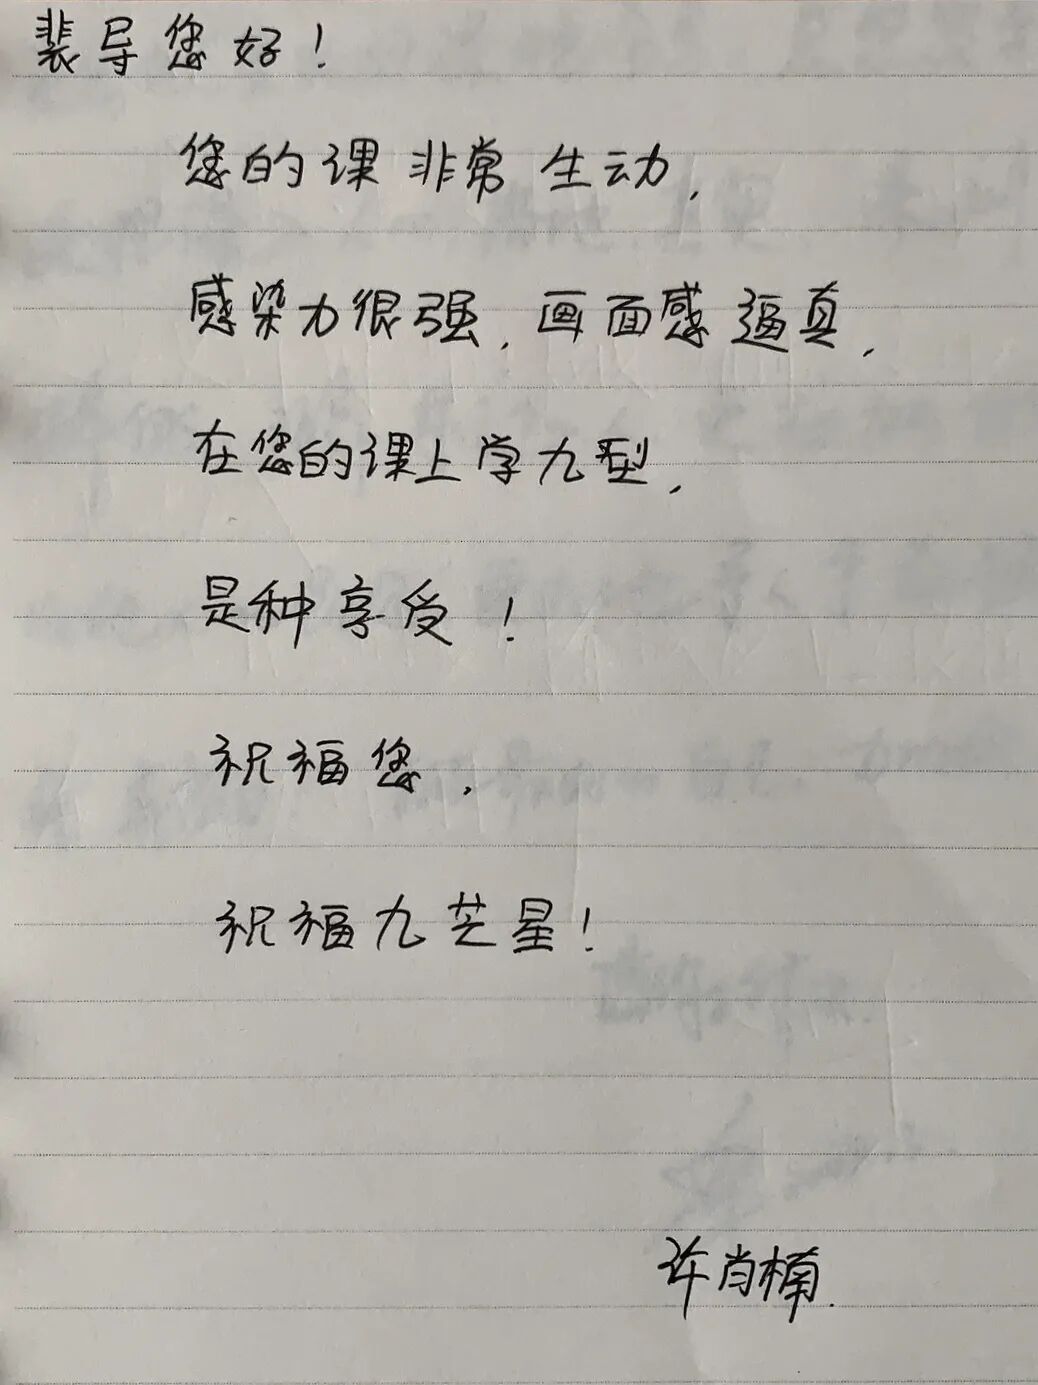 裴导您好！
您的课非常生动，
感染力很强，画面感逼真，
在您的课上学九型，
是种享受！
祝福您，
祝福九芒星！
许肖楠.